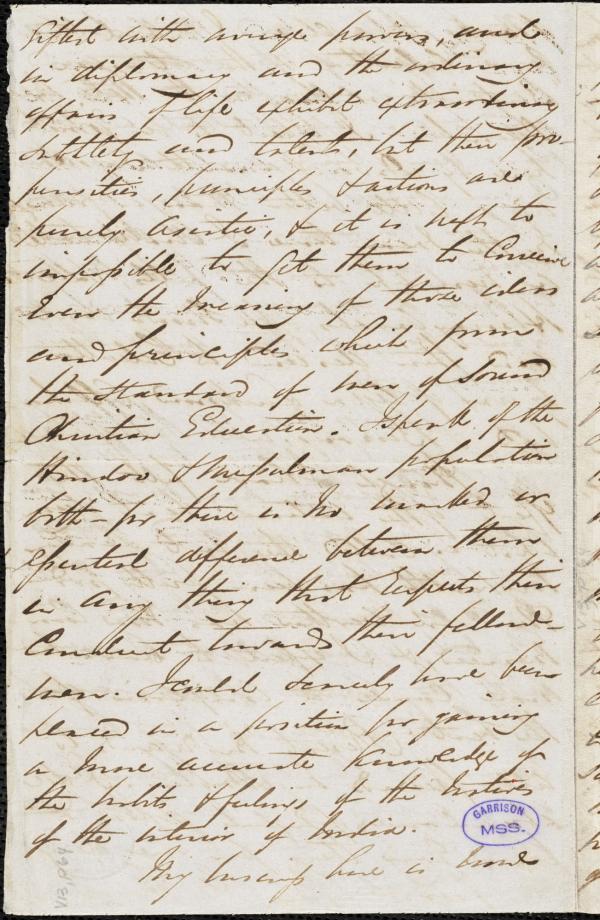 gifted with average powers, and
in diplomacy and the ordinary
affairs of life exhibit extraordinary
subtlety and talents, but their pro-
pensities, principles & actions are
purely Asiatic, & it is next to
impossible to get them to Conceive
even the meaning of those ideas
and principles which form
the standard of men of sound
Christian Education. I speak of the
Hindoo & Mussulman population
both - for there is no marked or
essential difference between them
in any thing that respects their
Conduct towards their fellow-
men. I could scarcely have been
placed in a position for gaining
a more accurate knowledge of
the habits & feelings of the natives
of the interior of India.
My business here is
GARRISON
MSS.